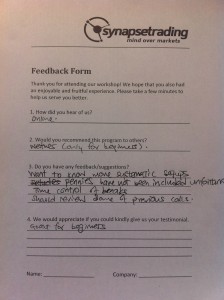 synapsetrading
mind over markets
Feedback Form
Thank you for attending our workshop! We hope that you also had
an enjoyable and fruitful experience. Please take a few minutes to
help us serve you better.
1. How did you hear of us?
Online
2. Would you recommend this program to others?
(only for beginners).
3. Do you have any feedback/suggestions?
Want to know more systematic
pennies have not been included unfortunately
Time control of breaks
Should review done of previous
4. We would appreciate if you could kindly give us your testimonial.
Great for beginners
Name:
Company: